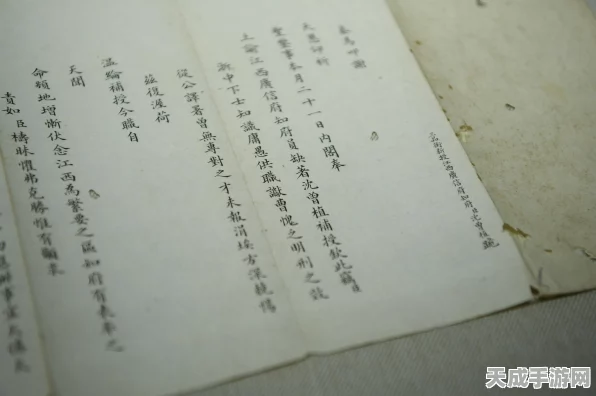 三品銜新授江西廣信府知府臣沈曾植跪
奏為叩謝
天恩仰祈
聖鑒事本月二十一日內閣奉
上諭江西廣信府知府員缺著沈曾植補授欽此竊臣
浙中下士知識庸愚供職讞曹愧乏明刑之效
從公譯署曾無專對之才未報涓埃方深兢惕
茲復渥荷
溫綸補授今職自
天聞
命頻地增慚伏念江西為繁要之區知府有表率之
責如臣檮昧懼弗克勝惟有籲求
天成手游网